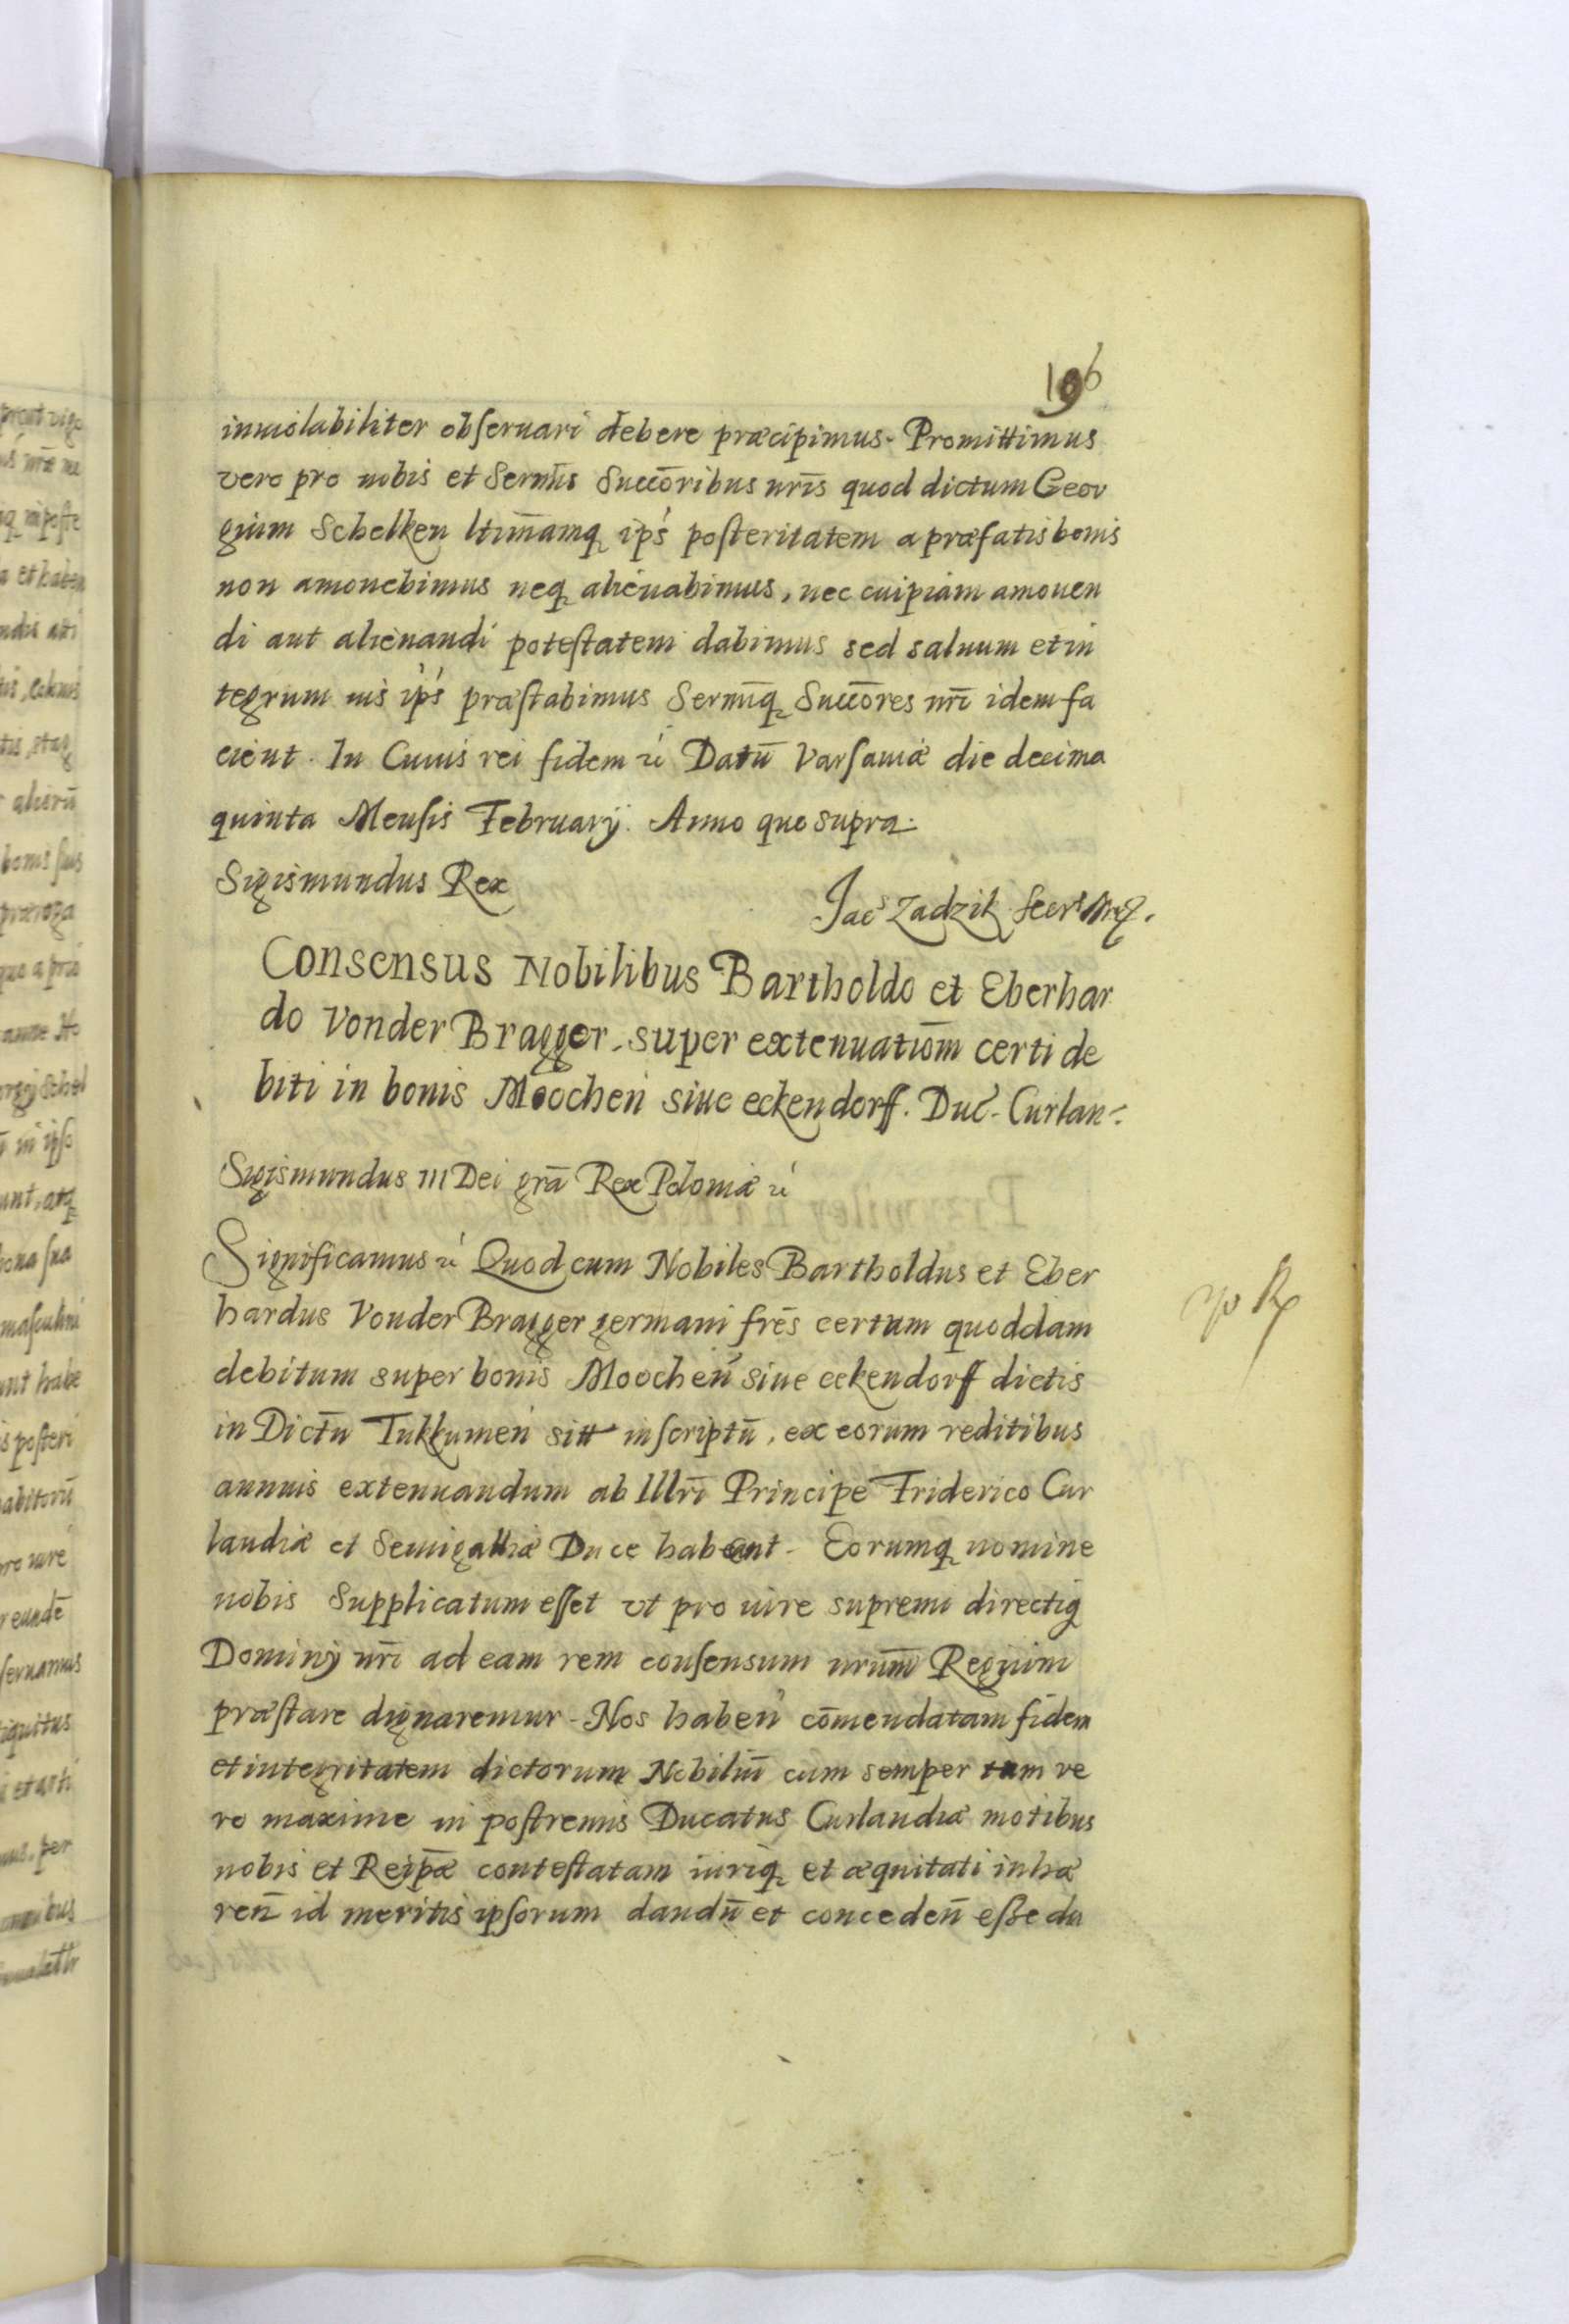 196
inuiolabiliter obseruari debere præcipimus. Promittimus
vero pro nobis et Sermis̄ Succōribus nrīs quod dictum Geor
gium Schelken ltim̄amq̨ ips̓ posteritatem a præfatis bonis
non amouebimus neq̨ alienabimus, nec cuipiam amouen
di aut alienandi potestatem dabimus sed saluum et in
tegrum ius ips̓ præstabimus Sermiq̨̄ Succōres nrī idem fa
cient. In Cuius rei fidem ꝛc̓ Datū Varsauiæ die decima
quinta Mensis February. Anno quo supra.
Sigismundus Rex
Jac⁹ Zadzik Secr
Consensus Nobilibus Bartholdo et Eberhar
do Vonder Bragger super extenuatiōm certi de
biti in bonis Moochen̓ siue eckendorff. Duc̓. Curlan:
Sigismundus III Dei grā Rex Poloniæ ꝛc̓
Significamus ꝛc̓ Quod cum Nobiles Bartholdus et Eber
hardus Vonder Bragger germani frēs certum quoddam
debitum super bonis Moochen̓ siue eckendorff dictis
in Dictū Tukkumen̓ sitt inscriptū, ex eorum reditibus
annuis extenuandum ab Illrī Principe Friderico Cur
landiæ et Semigalliæ Duce habeant. Eorumq̨ nomine
nobis Supplicatum esset vt pro iure supremi directiq̨
Dominÿ nrī ad eam rem consensum nrum̄ Regium
præstare dignaremur. Nos haben̓ cōmendatam fidem
et integritatem dictorum Nobiliū cum semper tum ve
ro maxime in postremis Ducatus Curlandiæ motibus
nobis et Reipǣ contestatam iuriq̨ et æquitati inhæ
ren̄ id meritis ipsorum dandū et conceden̄ esse du